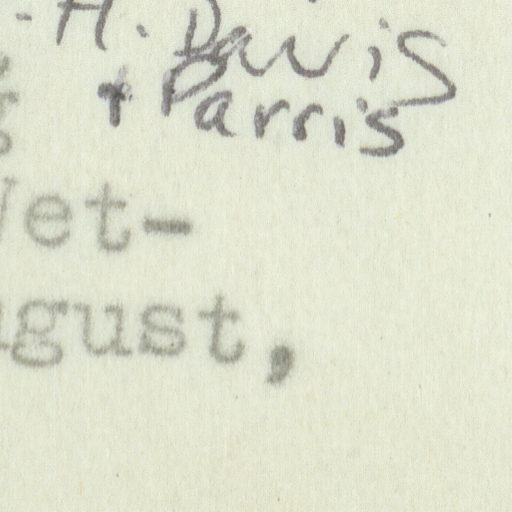 -H. Davis
+ Parris
Wet-
ugust,